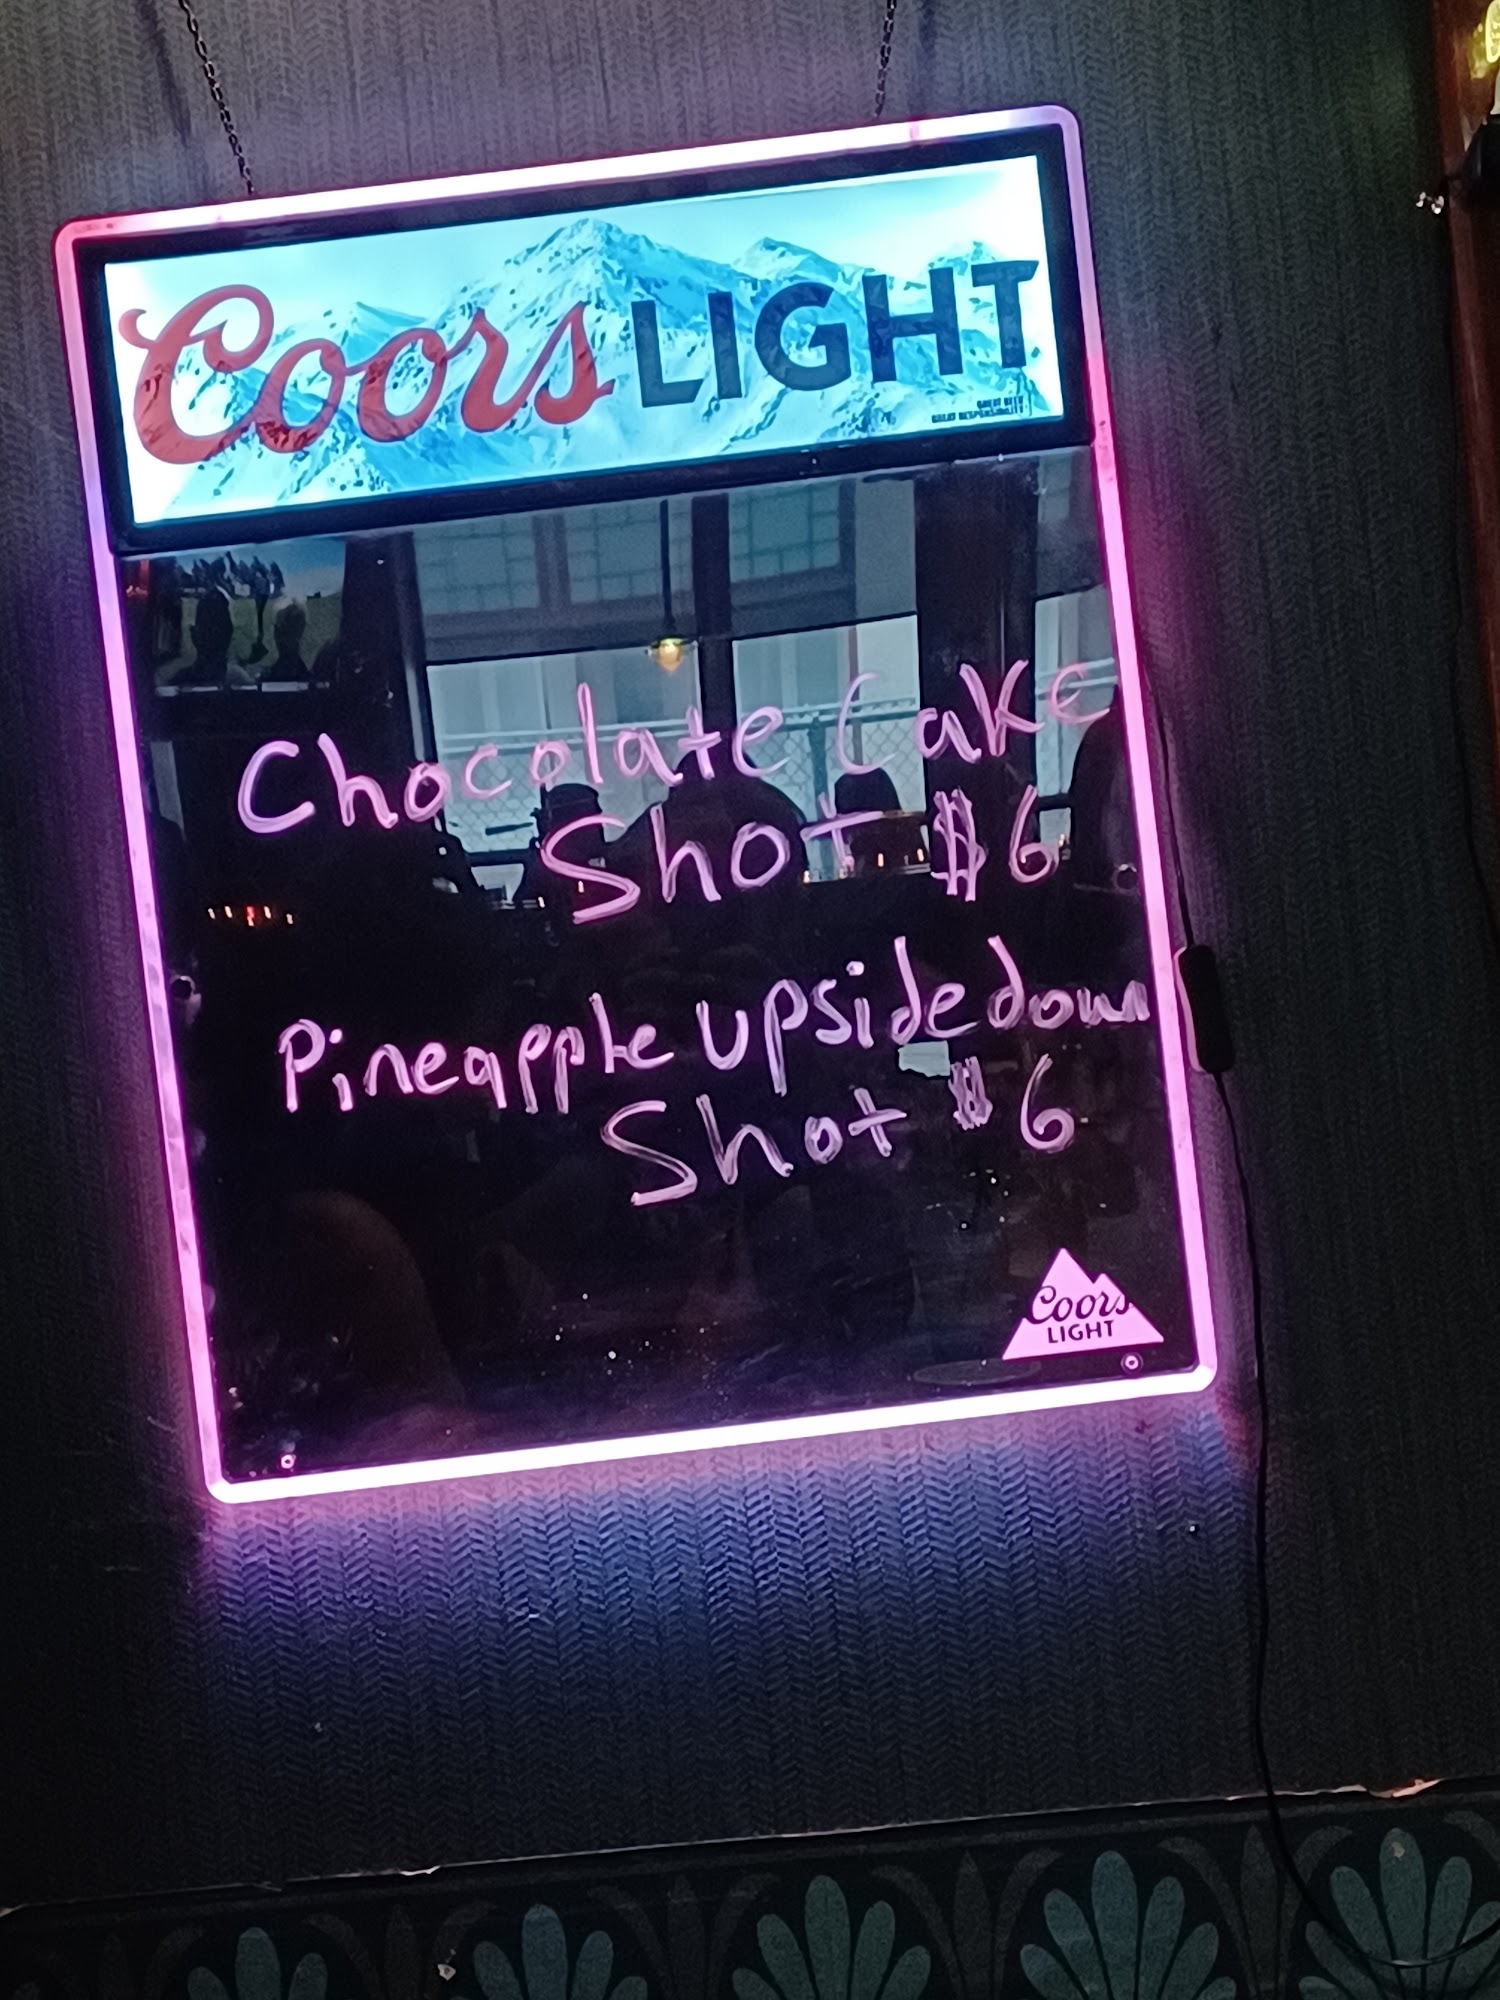 Coors LIGHT
GREAT BEER
GREAT RESPONSIBILITY
Chocolate Cake
Shot $6
Pineapple upside down
Shot $6
Coors
LIGHT